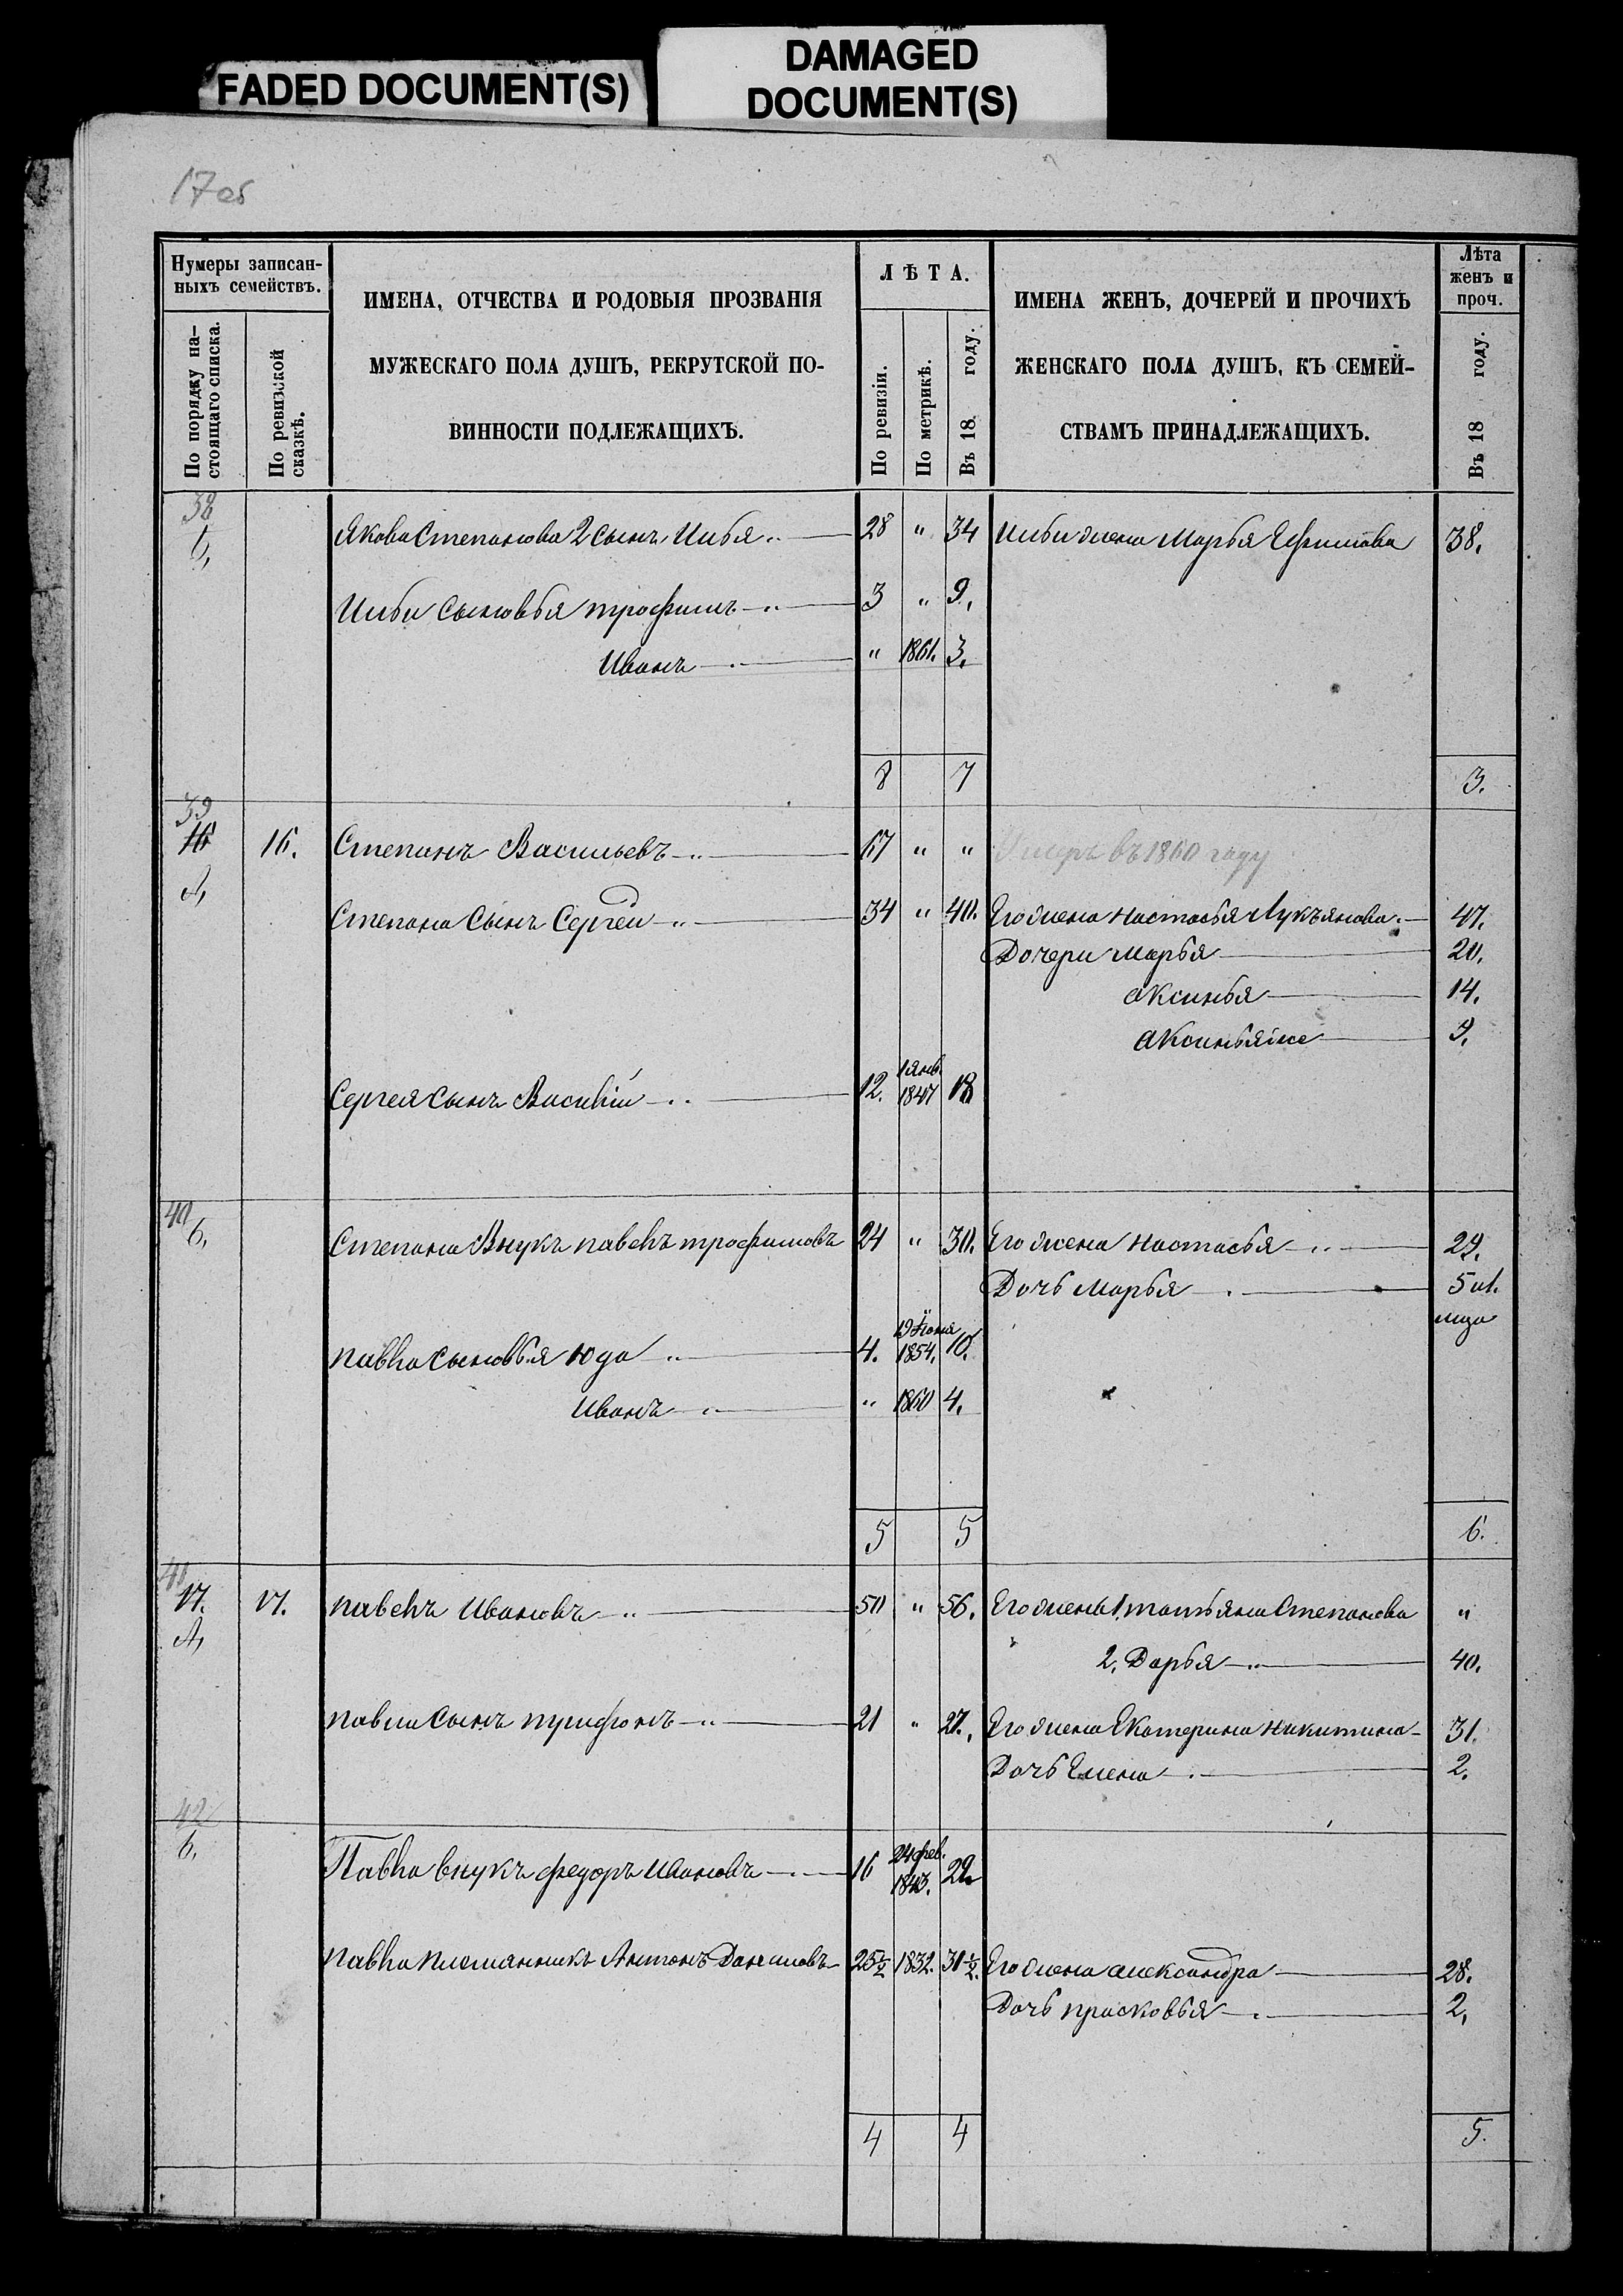 FADED DOCUMENT(S)
DAMAGED
DOCUMENT(S)
17об
Нумеры записан-
ныхъ семействъ.
По порядку на-
стоящаго списка.
По ревизской
сказкѣ.
ИМЕНА, ОТЧЕСТВА И РОДОВЫЯ ПРОЗВАНІЯ
МУЖЕСКАГО ПОЛА ДУШЪ, РЕКРУТСКОЙ ПО-
ВИННОСТИ ПОДЛЕЖАЩИХЪ.
ЛѢТА.
По ревизіи.
По метрикѣ.
Въ 18 году.
ИМЕНА ЖЕНЪ, ДОЧЕРЕЙ И ПРОЧИХЪ
ЖЕНСКАГО ПОЛА ДУШЪ, КЪ СЕМЕЙ-
СТВАМЪ ПРИНАДЛЕЖАЩИХЪ.
Лѣта
женъ и
проч.
Въ 18 году.
38
б, Якова Степанова 2 сынъ Илья 28 " 34 Ильи жена Марья Ефимова 38.
Ильи сыновья трофимъ 3 " 9,
Иванъ " 1861. 3.
8 7 3.
39
16 16. Степанъ Васильевъ 67 " " Умеръ въ 1860 году
А,
Степана Сынъ Сергей 34 " 40. Его жена настасья Лукъянова 47.
Дочери марья 20.
аксинья 14.
аксинья же 9.
Сергея сынъ Василій 12. 1 янв. 1847 18
40
б, Степана Внукъ павелъ трофимовъ 24 " 30. Его жена настасья 29.
Дочь марья 5 м.
павла сыновья юда 4. 19 Іюня 1854. 10.
Иванъ " 1860 4.
5 5 6.
41
17. 17. павелъ Ивановъ 50 " 56. Его жены 1. татьяна Степанова "
А,
2. Дарья 40.
павла сынъ трифонъ 21 " 27. Его жена Екатерина никитина 31.
Дочь Елена 2.
42
б, Павла внукъ федоръ Ивановъ 16 24 фев. 1843. 22
павла племянникъ Антонъ Даниловъ 25½ 1832. 31½. Его жена александра 28.
Дочь прасковья 2,
4 4 5.